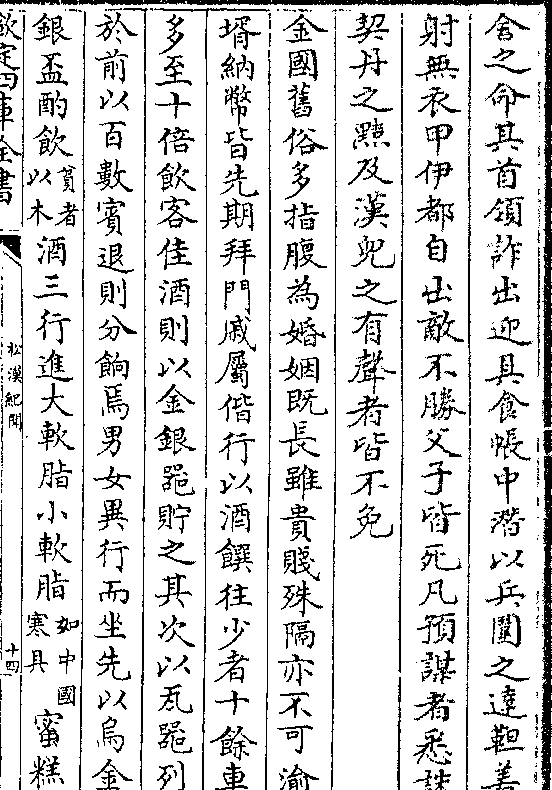 舍之命其首領詐出迎具食帳中潛以兵圍之達靼善
射無衣甲伊都自出敵不勝父子皆死凡預謀者悉誅
契丹之黠及漢兒之有聲者皆不免
金國舊俗多指腹為婚姻既長雖貴賤殊隔亦不可渝
壻納幣皆先期拜門戚屬偕行以酒饌往少者十餘車
多至十倍飲客佳酒則以金銀噐貯之其次以瓦噐列
於前以百數賓退則分餉焉男女異行而坐先以烏金
銀盃酌飲貧者以木酒三行進大軟脂小軟脂如中國寒具蜜糕
欽定四庫全書
松漠紀聞
十四